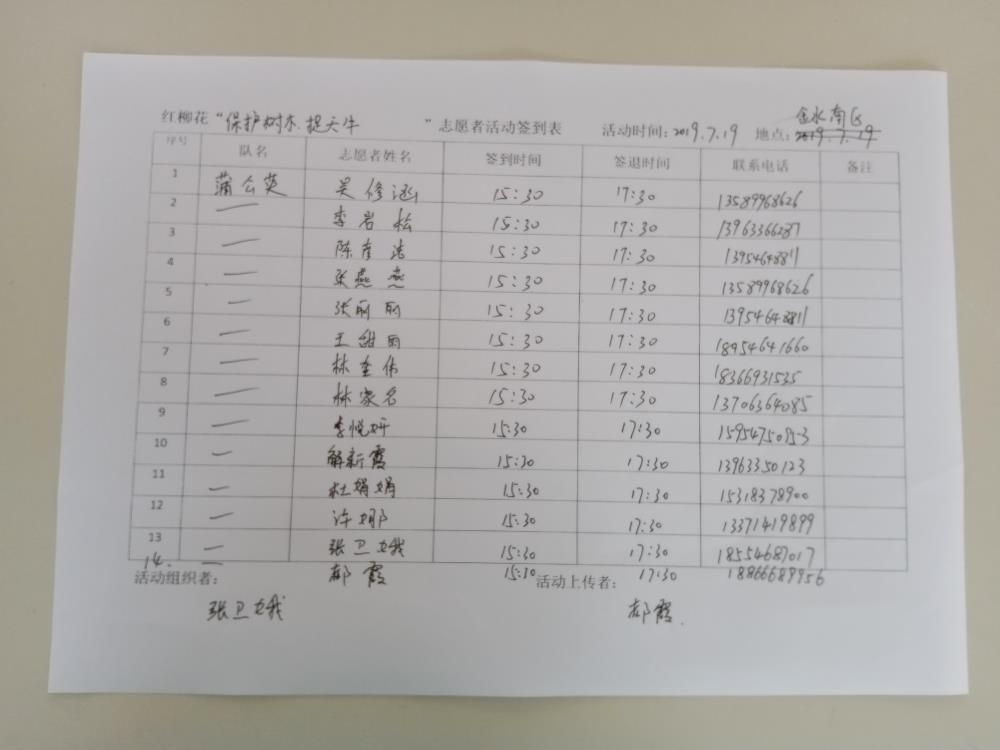 红柳花“保护树木.捉天牛”志愿者活动签到表 活动时间:2019.7.19 地点:2019.7.19 金水南区
序号 队名 志愿者姓名 签到时间 签退时间 联系电话 备注
1 蒲公英 吴修涵 15:30 17:30 13589968626
2 — 李岩松 15:30 17:30 13963366287
3 — 陈奎浩 15:30 17:30 13954648811
4 — 张燕燕 15:30 17:30 13589968626
5 — 张丽丽 15:30 17:30 13954648811
6 — 王甜丽 15:30 17:30 18954641660
7 — 林奎伟 15:30 17:30 18366931535
8 — 林家名 15:30 17:30 13706364085
9 — 李悦妍 15:30 17:30 15954750953
10 — 解新霞 15:30 17:30 13963350123
11 — 杜娟娟 15:30 17:30 15318378900
12 — 许娜 15:30 17:30 13371419899
13 — 张卫娥 15:30 17:30 18554687017
14. — 郝霞 15:30 17:30 18866689956
活动组织者: 活动上传者:
张卫娥 郝霞.